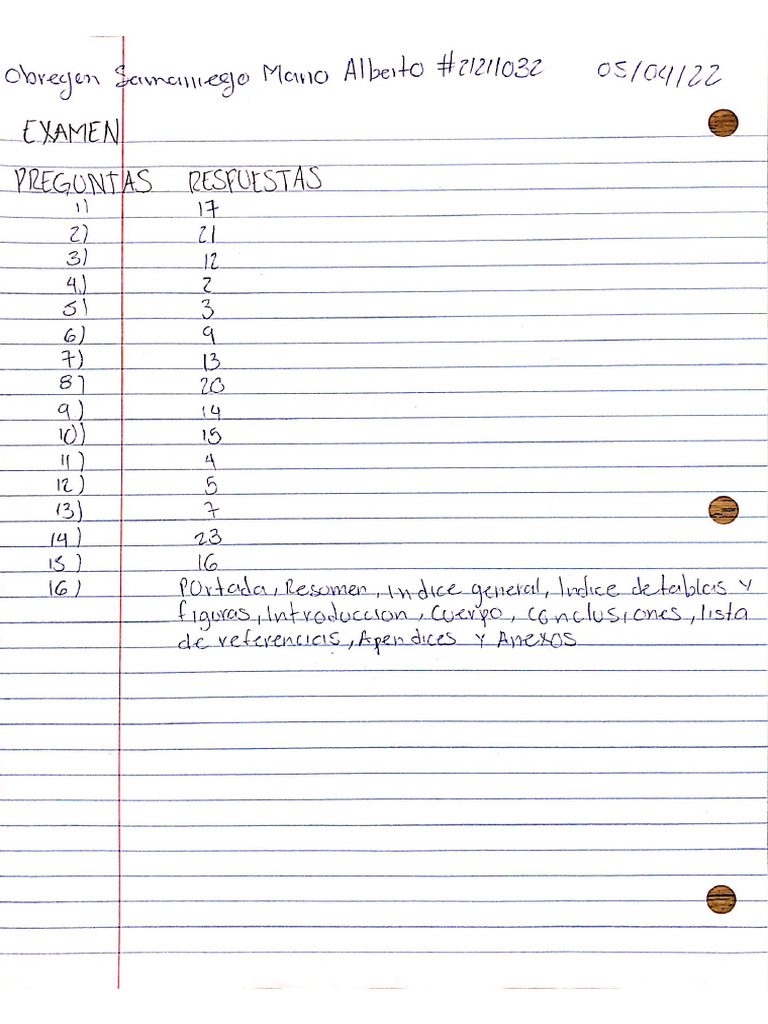 Obregon Samaniego Mario Alberto #21211032 05/04/22
EXAMEN
PREGUNTAS RESPUESTAS
1) 17
2) 21
3) 12
4) 2
5) 3
6) 9
7) 13
8) 20
9) 14
10) 15
11) 4
12) 5
13) 7
14) 23
15) 16
16) Portada, Resumen, Indice general, Indice de tablas y
figuras, Introduccion, Cuerpo, Conclusiones, lista
de referencias, Apendices Y Anexos